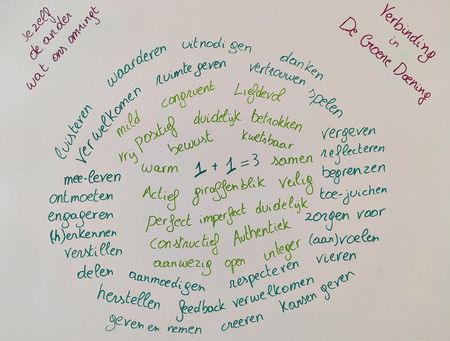 Jezelf
de ander
wat ons omringt
Verbinding
in
De Groene Doening
luisteren
waarderen
uitnodigen
danken
verwelkomen
ruimte geven
vertrouwen
spelen
mild
congruent
Liefdevol
vrij
positief
duidelijk
betrokken
bewust
kwetsbaar
warm
1 + 1 = 3
samen
vergeven
reflecteren
begrenzen
mee-leven
Actief
giraffenblik
veilig
toe-juichen
ontmoeten
engageren
perfect imperfect duidelijk
zorgen voor
(h)erkennen
constructief
Authentiek
(aan)voelen
verstillen
aanwezig
open
integer
vieren
delen
aanmoedigen
respecteren
herstellen
feedback verwelkomen
kansen geven
geven en nemen
creëren